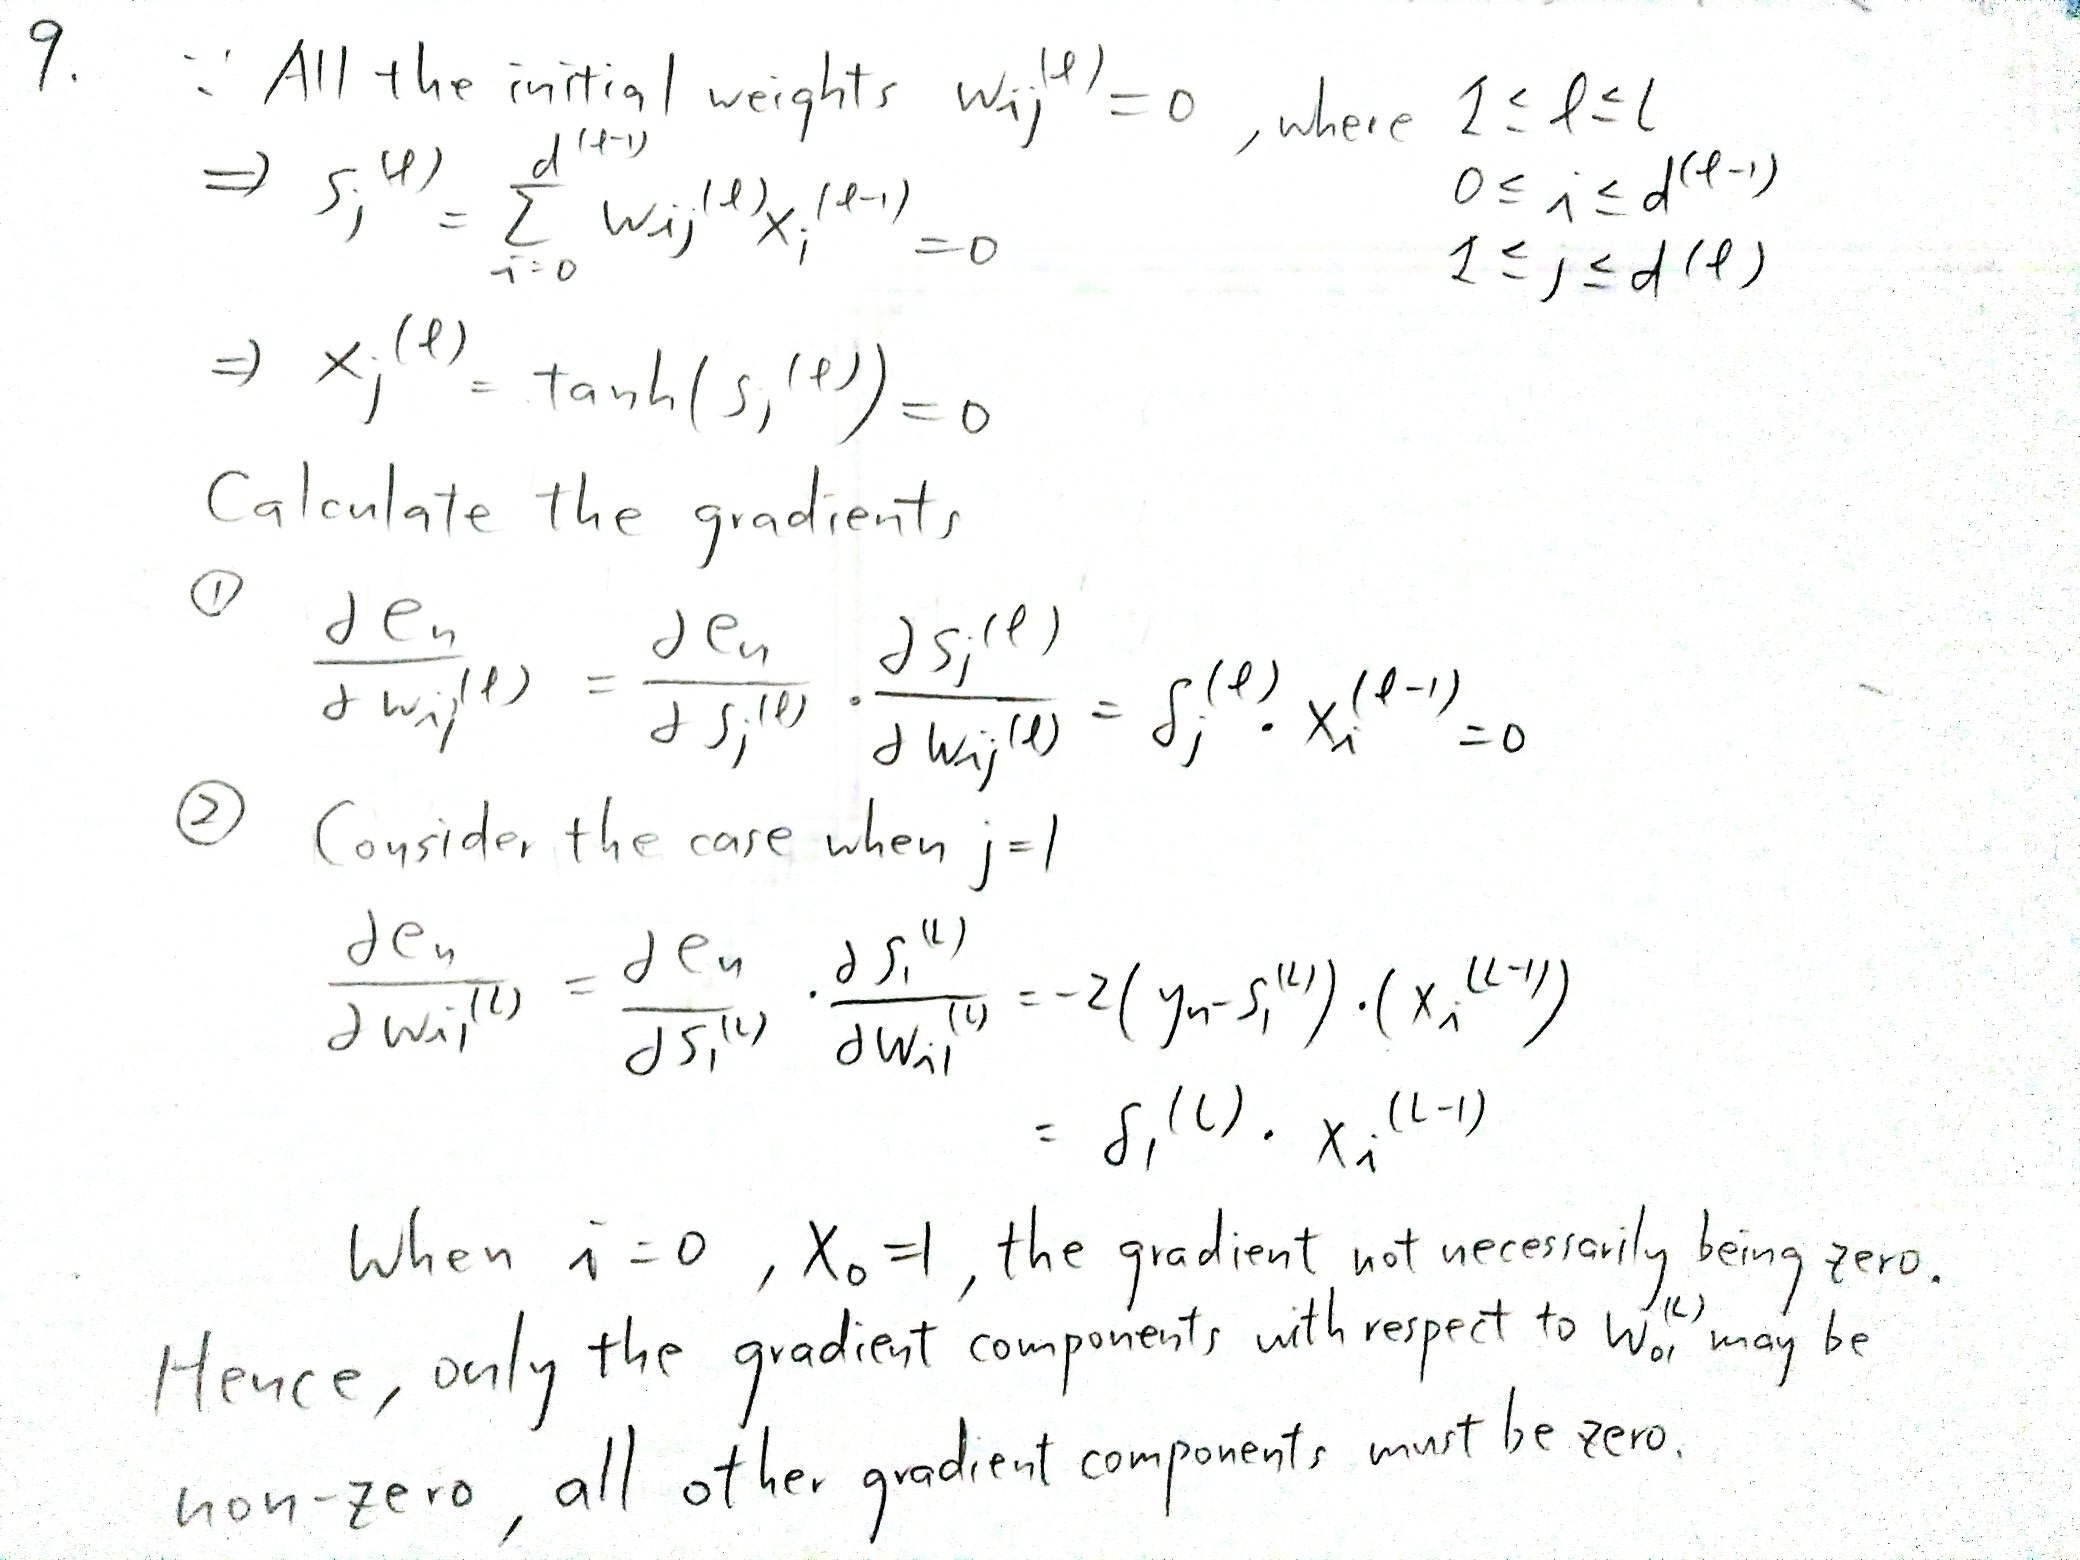 9. ∵ All the initial weights wij^(ℓ) = 0, where 1 ≤ ℓ ≤ L
0 ≤ i ≤ d^(ℓ-1)
1 ≤ j ≤ d^(ℓ)
⇒ sj^(ℓ) = Σ_{i=0}^{d^(ℓ-1)} wij^(ℓ) xi^(ℓ-1) = 0
⇒ xj^(ℓ) = tanh(sj^(ℓ)) = 0
Calculate the gradients
① ∂en/∂wij^(ℓ) = ∂en/∂sj^(ℓ) · ∂sj^(ℓ)/∂wij^(ℓ) = δj^(ℓ) · xi^(ℓ-1) = 0
② Consider the case when j=1
∂en/∂wi1^(L) = ∂en/∂s1^(L) · ∂s1^(L)/∂wi1^(L) = -2(yn-s1^(L)) · (xi^(L-1))
= δ1^(L) · xi^(L-1)
When i=0, X0=1, the gradient not necessarily being zero.
Hence, only the gradient components with respect to w01^(L) may be
non-zero, all other gradient components must be zero.